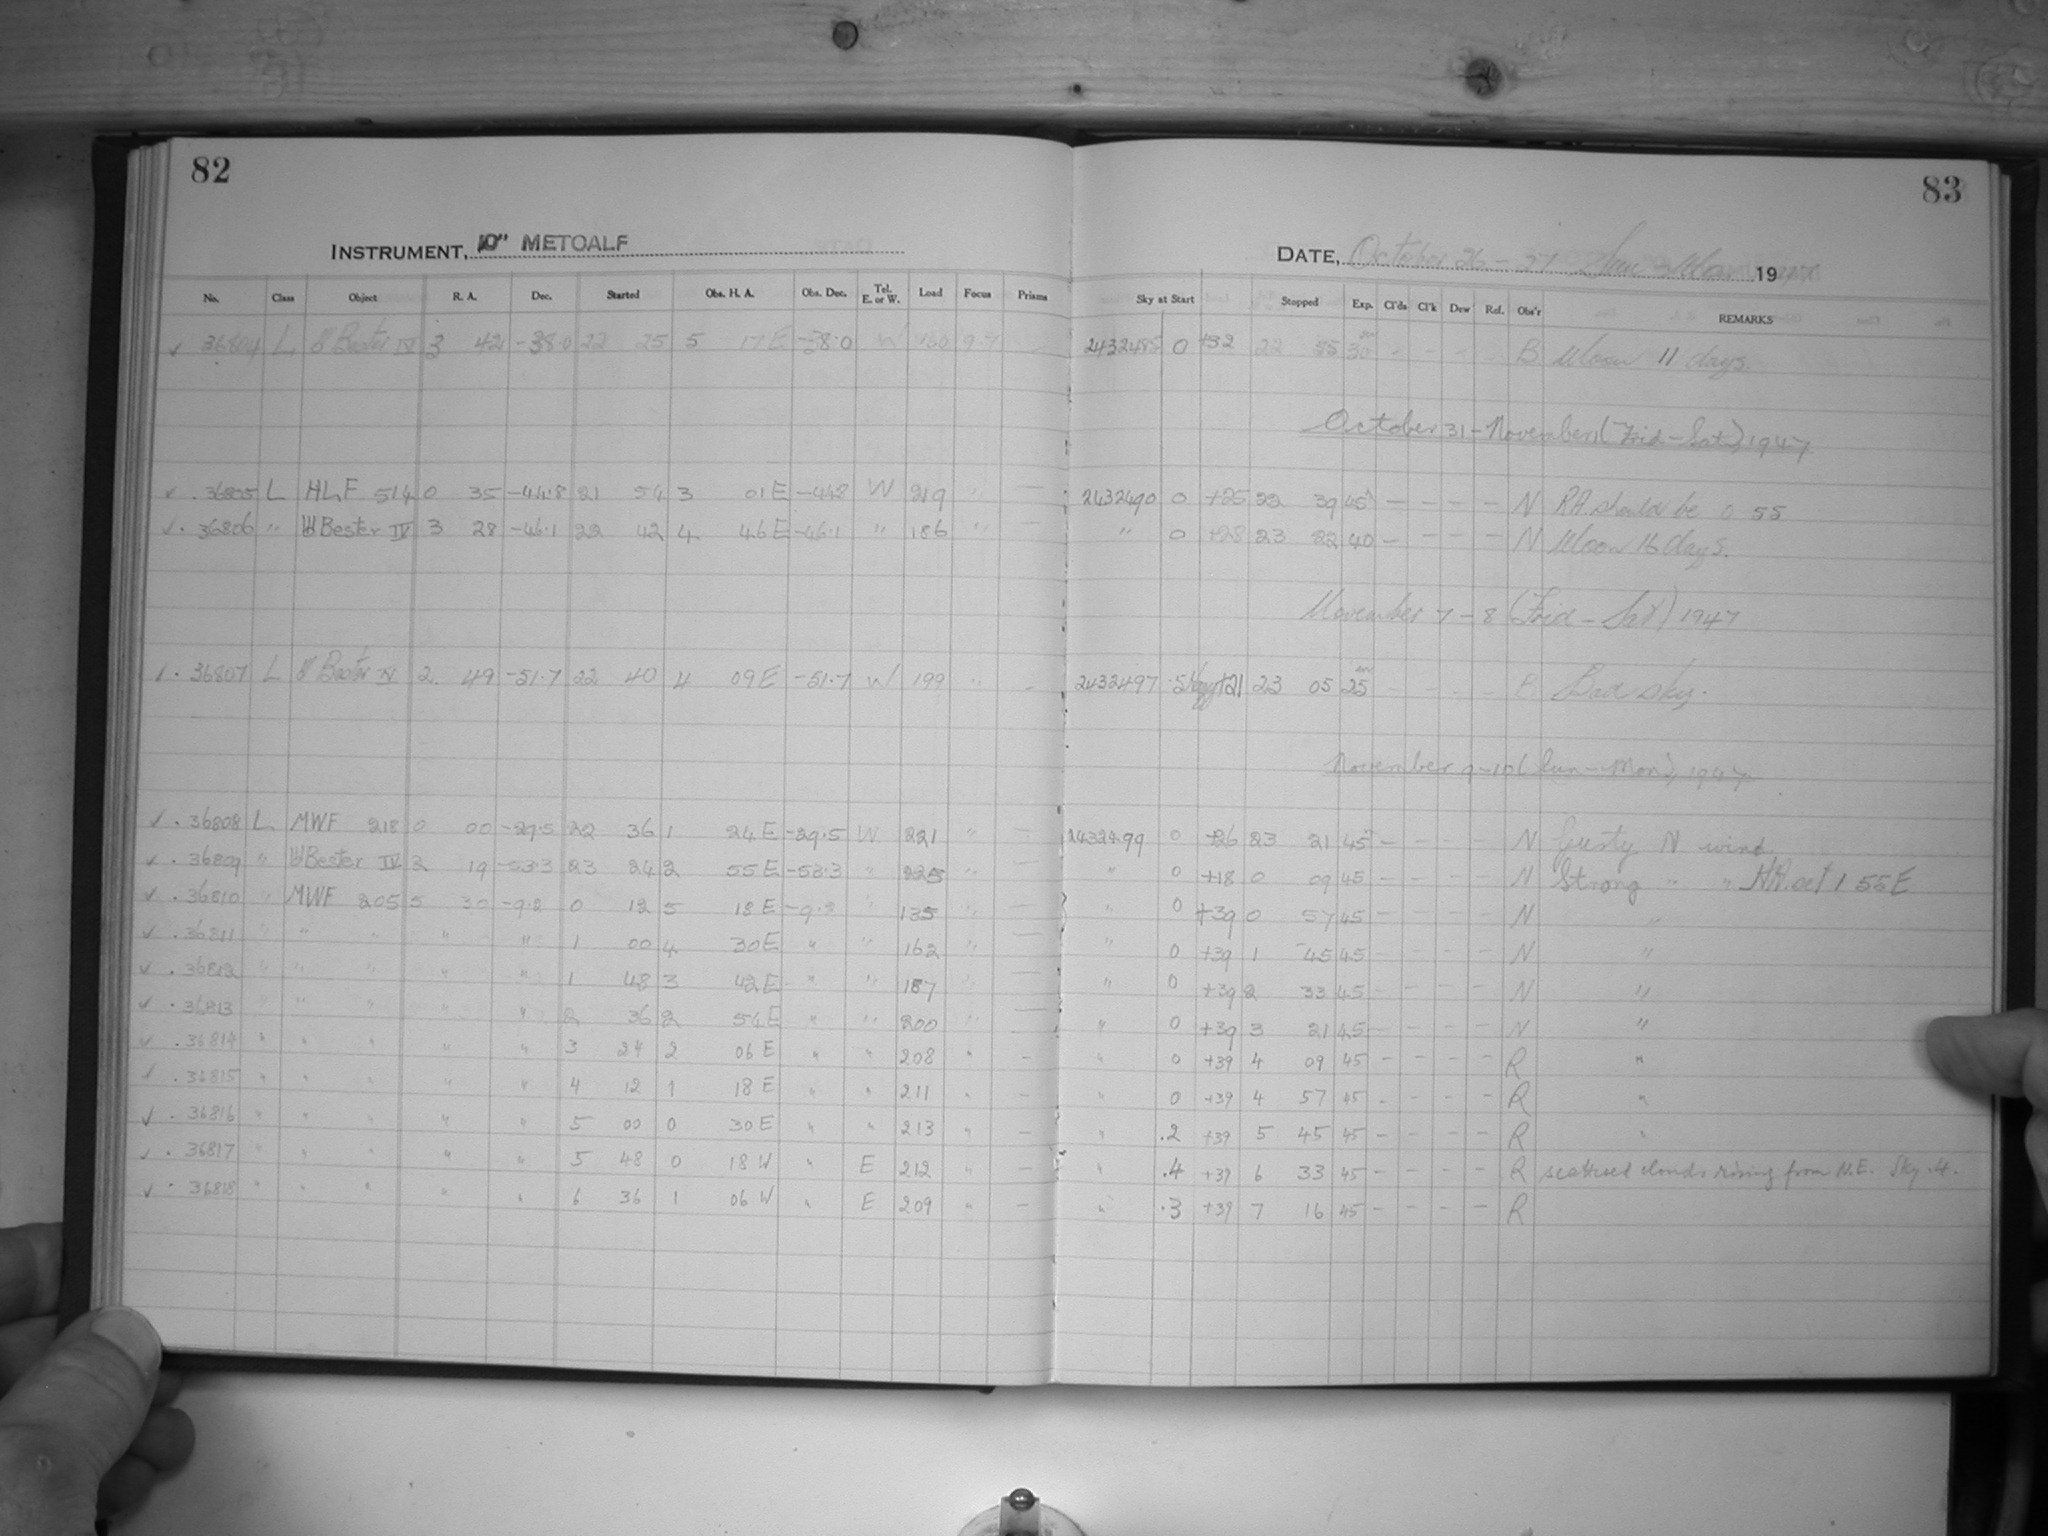 82
83
INSTRUMENT, 10" METCALF
DATE, October 26 - 27 Sun - Mon 19
No. Class Object R. A. Dec. Started Obs. H. A. Obs. Dec. Tel. E. or W. Load Focus Prisms Sky at Start Stopped Exp. Cl'ds Cl'k Dew Ref. Obs'r REMARKS
✓ 36804 L Bester IV 3 42 -38.0 22 25 5 17 E -38.0 W 160 9.7 2432485 0 +32 22 55 30 - - - - B Moon 11 days.
October 31 - November 1 (Frid - Sat), 1947
✓ . 36805 L HLF 514 0 35 -44.8 21 54 3 01 E -448 W 219 " — 2432490 0 +25 22 39 45 — - - - N RA. should be 0 55
✓ . 36806 " Bester IV 3 28 -46.1 22 42 4 46 E -46.1 " 186 " " 0 +28 23 22 40 - - - - N Moon 16 days.
November 7 - 8 (Frid - Sat) 1947
✓ . 36807 L Bester IV 2 49 -51.7 22 40 4 09 E -51.7 W 199 " - 2432497 .5 Hazy +21 23 05 25 - - - - B Bad sky.
November 9-10 (Sun - Mon), 1947
✓ . 36808 L MWF 218 0 00 -29.5 22 36 1 24 E -29.5 W 221 " — 2432499 0 +26 23 21 45 - - - - N Gusty N wind.
✓ . 36809 " Bester IV 2 19 -53.3 23 24 2 55 E -53.3 " 225 " — " 0 +18 0 09 45 - - - - N Strong " " HA. set 1 55 E
✓ . 36810 " MWF 205 5 30 -9.2 0 12 5 18 E -9.2 " 135 " — " 0 +39 0 57 45 - - - - N "
✓ . 36811 " " " " " 1 00 4 30 E " " 162 " — " 0 +39 1 45 45 - - - - N "
✓ . 36812 " " " " " 1 48 3 42 E " " 187 " — " 0 +39 2 33 45 - - - - N "
✓ . 36813 " " " " " 2 36 2 54 E " " 200 " — " 0 +39 3 21 45 - - - - N "
✓ . 36814 " " " " " 3 24 2 06 E " " 208 " - " 0 +39 4 09 45 - - - - R "
✓ . 36815 " " " " " 4 12 1 18 E " " 211 " - " 0 +39 4 57 45 - - - - R "
✓ . 36816 " " " " " 5 00 0 30 E " " 213 " — " .2 +39 5 45 45 - - - - R "
✓ . 36817 " " " " " 5 48 0 18 W " E 212 " — " .4 +39 6 33 45 - - - - R scattered clouds rising from N.E. Sky .4.
✓ . 36818 " " " " " 6 36 1 06 W " E 209 " — " .3 +39 7 16 45 - - - - R